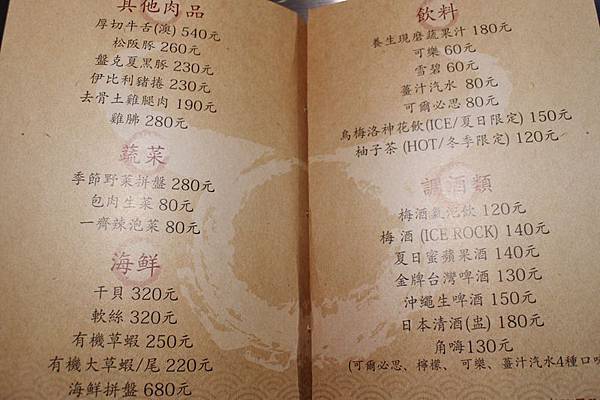 其他肉品
厚切牛舌(澳) 540元
松阪豚 260元
盤克夏黑豚 230元
伊比利豬捲 230元
去骨土雞腿肉 190元
雞胇 280元
蔬菜
季節野菜拼盤 280元
包肉生菜 80元
一齊辣泡菜 80元
海鮮
干貝 320元
軟絲 320元
有機草蝦 250元
有機大草蝦/尾 220元
海鮮拼盤 680元
飲料
養生現磨蔬果汁 180元
可樂 60元
雪碧 60元
薑汁汽水 80元
可爾必思 80元
烏梅洛神花飲(ICE/夏日限定) 150元
柚子茶 (HOT/冬季限定) 120元
調酒類
梅酒氣泡飲 120元
梅酒 (ICE ROCK) 140元
夏日蜜蘋果酒 140元
金牌台灣啤酒 130元
沖繩生啤酒 150元
日本清酒(盅) 180元
角嗨130元
(可爾必思、檸檬、可樂、薑汁汽水4種口